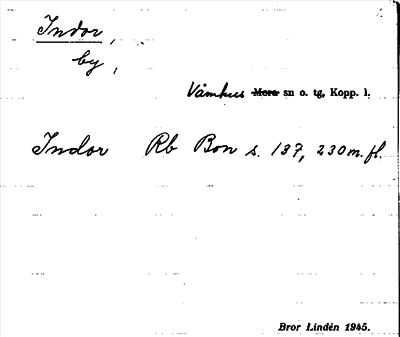 Indor,
by,
Våmhus Mora sn o. tg, Kopp. l.
Indor Rb Bon s. 137, 230 m. fl.
Bror Lindén 1945.